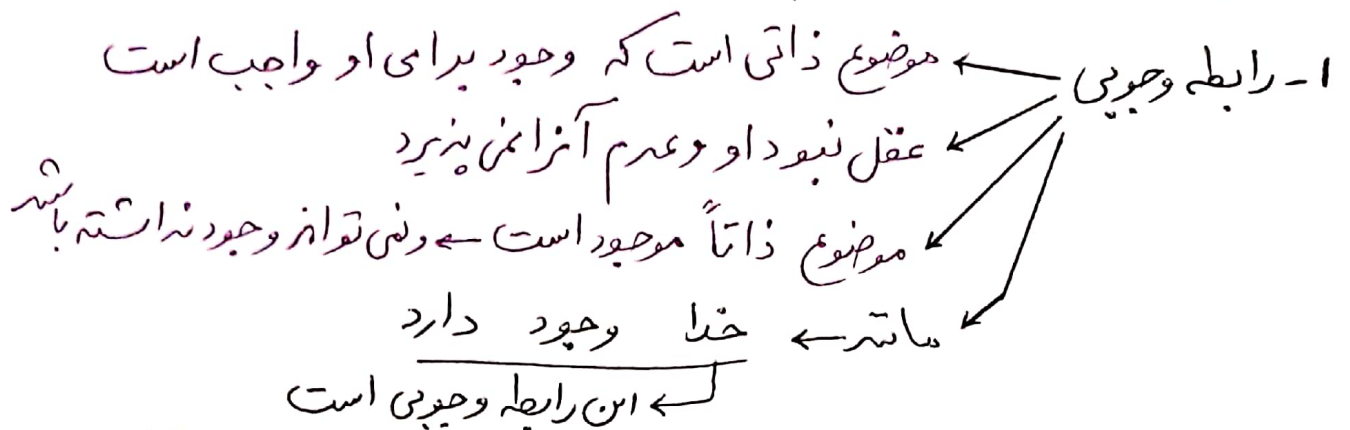 ۱- رابطه وجوبی ← موضوع ذاتی است که وجود برای او واجب است
← عقل نبود او و عدم آنرا نمی پذیرد
← موضوع ذاتاً موجود است ← و نمی تواند وجود نداشته باشد
← مانند ← خدا وجود دارد
← این رابطه وجوبی است